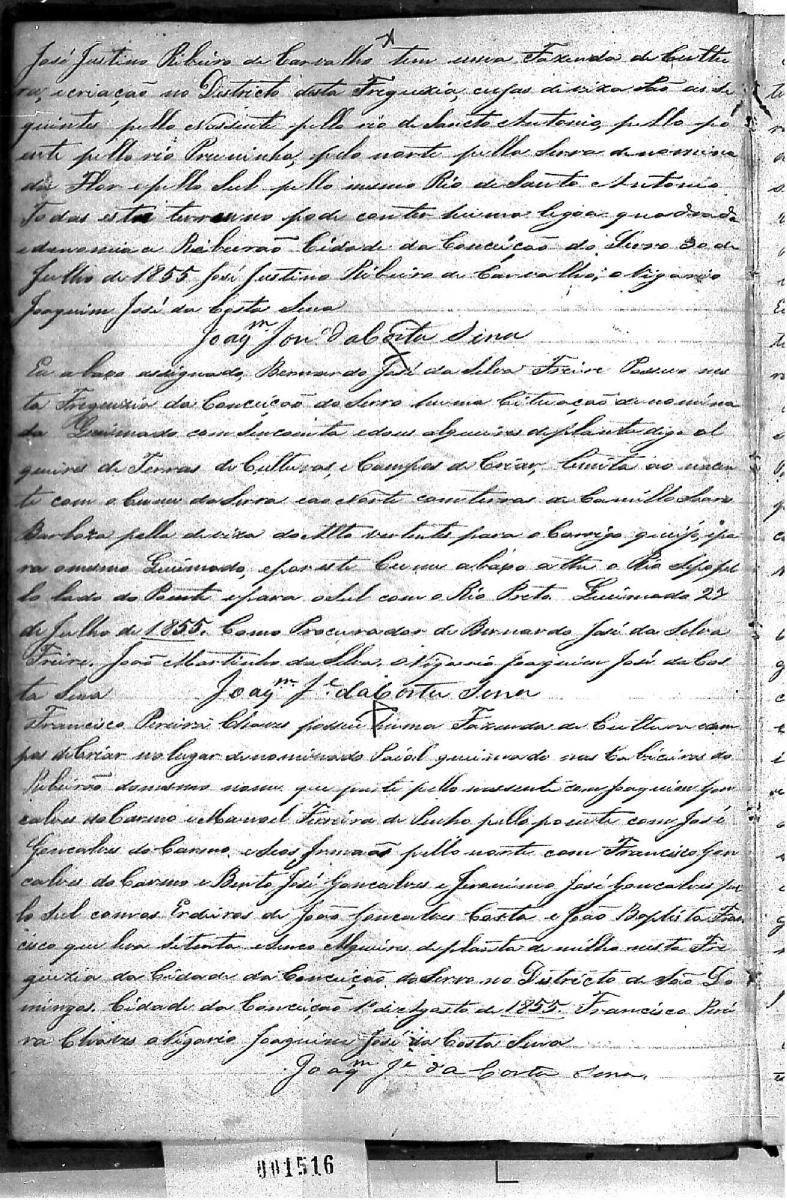 José Justino Ribeiro de Carvalho tem uma Fazenda de Cultu
ra, e criação no Districto desta Freguezia, cujas divizas são as se
guintes, pello Nassente pello rio de Sancto Antonio, pello po
ente pello rio Preuninho, pelo norte pella Serra denomina
da Flor e pello Sul pello mesmo Rio de Santo Antonio
Todas esta terreno pode conter huma legoa quadrada
e denomina Ribeirão Cidade da Conceição do Serro 30 de
Julho de 1855. José Justino Ribeiro de Carvalho, o Vigario
Joaquim José da Costa Sena
Joaqm José da Costa Sena
Eu abaxo assignado, Bernardo José da Silva Freire Possuo nes
ta Freguezia da Conceição do Serro huma Cituação denomina
da Queimado com Sincoenta e dous alqueires de plante digo al
queires de Terras de Culturas, e Campos de Criar, limita ao nacen
te com o Cume da Serra e ao Norte com terras de Camillo
Barboza pella diviza do Alto vertente para o Corrigo e pa
ra o mesmo Queimado, e por este Cume abaxo athe o Rio pel
lo lado do Poente e para o Sul com o Rio Preto. Queimado 27
de Julho de 1855. Como Procurador de Bernardo José da Silva
Freire. João Martinho da Silva. o Vigario Joaquim José da Cos
ta Sena Joaqm Je da Costa Sena
Francisco Pereira Chaves possui huma Fazenda de Cultura cam
pos de Criar no lugar denominado Paiol queimado nas Cabiceiras do
Ribeirão do mesmo nome que parte pello nassente com Joaquim Gon
calves do Carmo e Manoel Ferreira de pello poente com José
Goncalves do Carmo, e seos Irmaos pello norte com Francisco Gon
calves do Carmo e Bento José Goncalves e Jeronimo José Goncalves pe
lo Sul com os Erdeiros de João Goncalves Costa e João Baptista Fran
cisco que leva setenta e sinco Alqueires de planta de milho nesta Fre
guezia da Cidade da Conceição do Serro no Districto de São Do
mingos. Cidade da Conceição 1º de Agosto de 1855. Francisco Perei
ra Chaves o Vigario Joaquim José da Costa Sena
Joaqm Je da Costa Sena.
001516